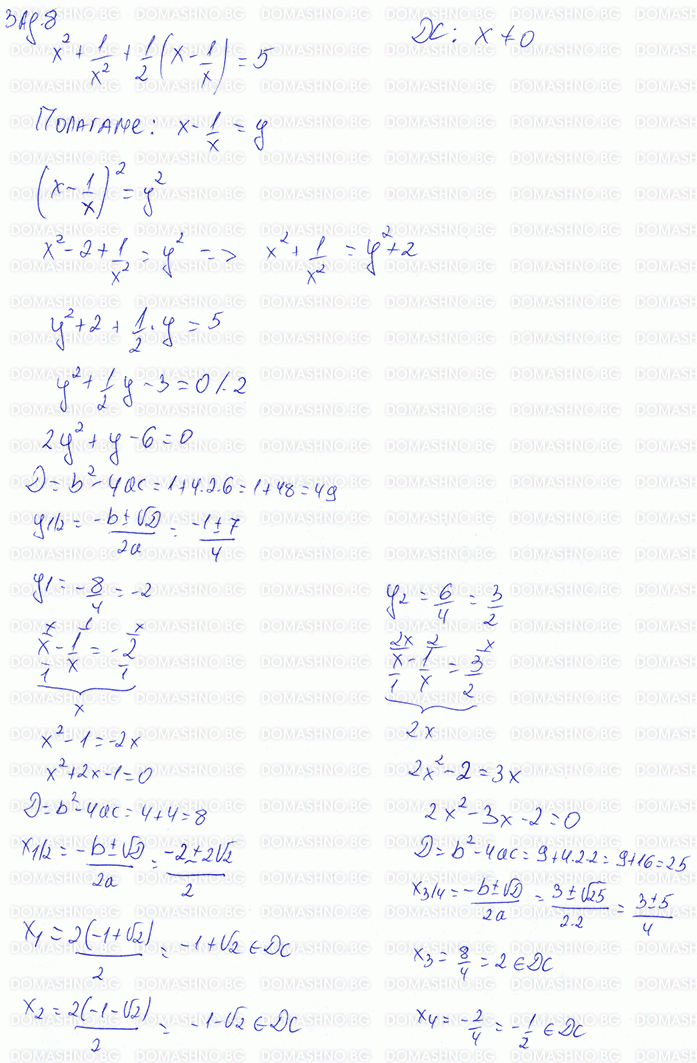 Зад 8
x² + 1/x² + 1/2 (x - 1/x) = 5
DC: x ≠ 0
Полагаме: x - 1/x = y
(x - 1/x)² = y²
x² - 2 + 1/x² = y² => x² + 1/x² = y² + 2
y² + 2 + 1/2 . y = 5
y² + 1/2 y - 3 = 0 /. 2
2y² + y - 6 = 0
D = b² - 4ac = 1 + 4.2.6 = 1 + 48 = 49
y1/2 = (-b ± √D)/2a = (-1 ± 7)/4
y1 = -8/4 = -2
x/1 - 1/x = -2/1
x
x² - 1 = -2x
x² + 2x - 1 = 0
D = b² - 4ac = 4 + 4 = 8
x1/2 = (-b ± √D)/2a = (-2 ± 2√2)/2
x1 = 2(-1 + √2)/2 = -1 + √2 ∈ DC
x2 = 2(-1 - √2)/2 = -1 - √2 ∈ DC
y2 = 6/4 = 3/2
x/1 - 1/x = 3/2
2x
2x² - 2 = 3x
2x² - 3x - 2 = 0
D = b² - 4ac = 9 + 4.2.2 = 9 + 16 = 25
x3/4 = (-b ± √D)/2a = (3 ± √25)/2.2 = (3 ± 5)/4
x3 = 8/4 = 2 ∈ DC
x4 = -2/4 = -1/2 ∈ DC
DOMASHNO.BG